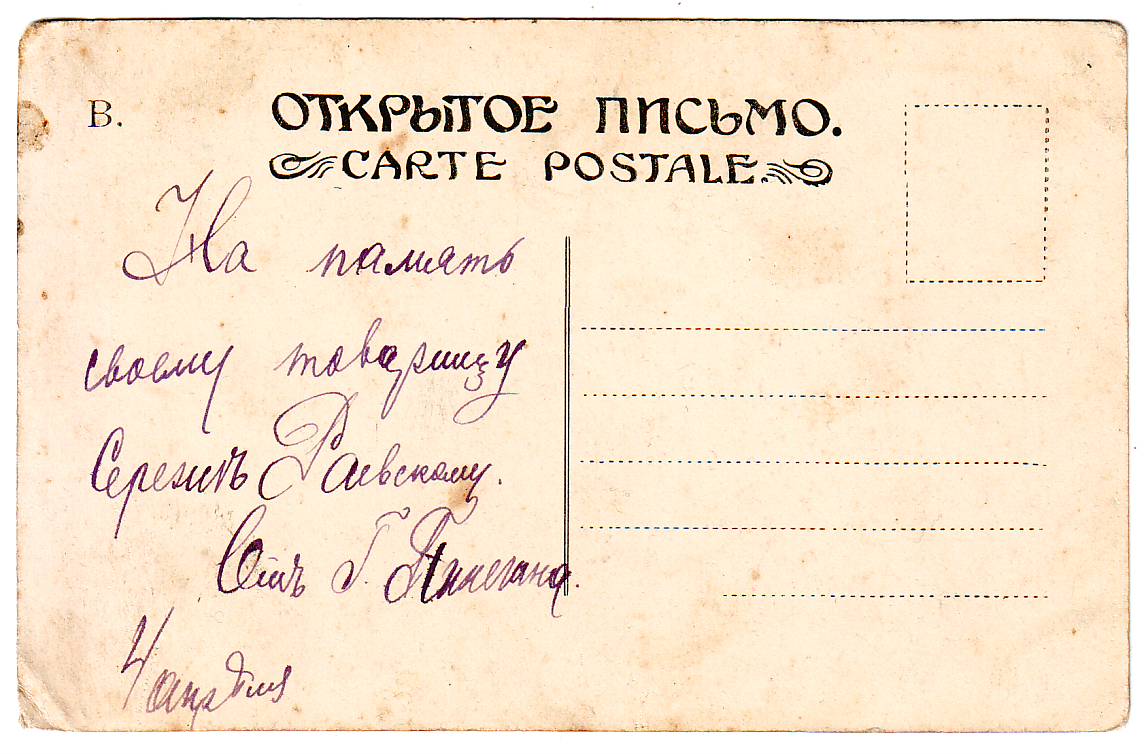 В.
ОТКРЫТОЕ ПИСЬМО.
CARTE POSTALE.
На память
своему товарищу
Сережѣ Раевскому.
Отъ Г. Пинегина.
4 апрѣля